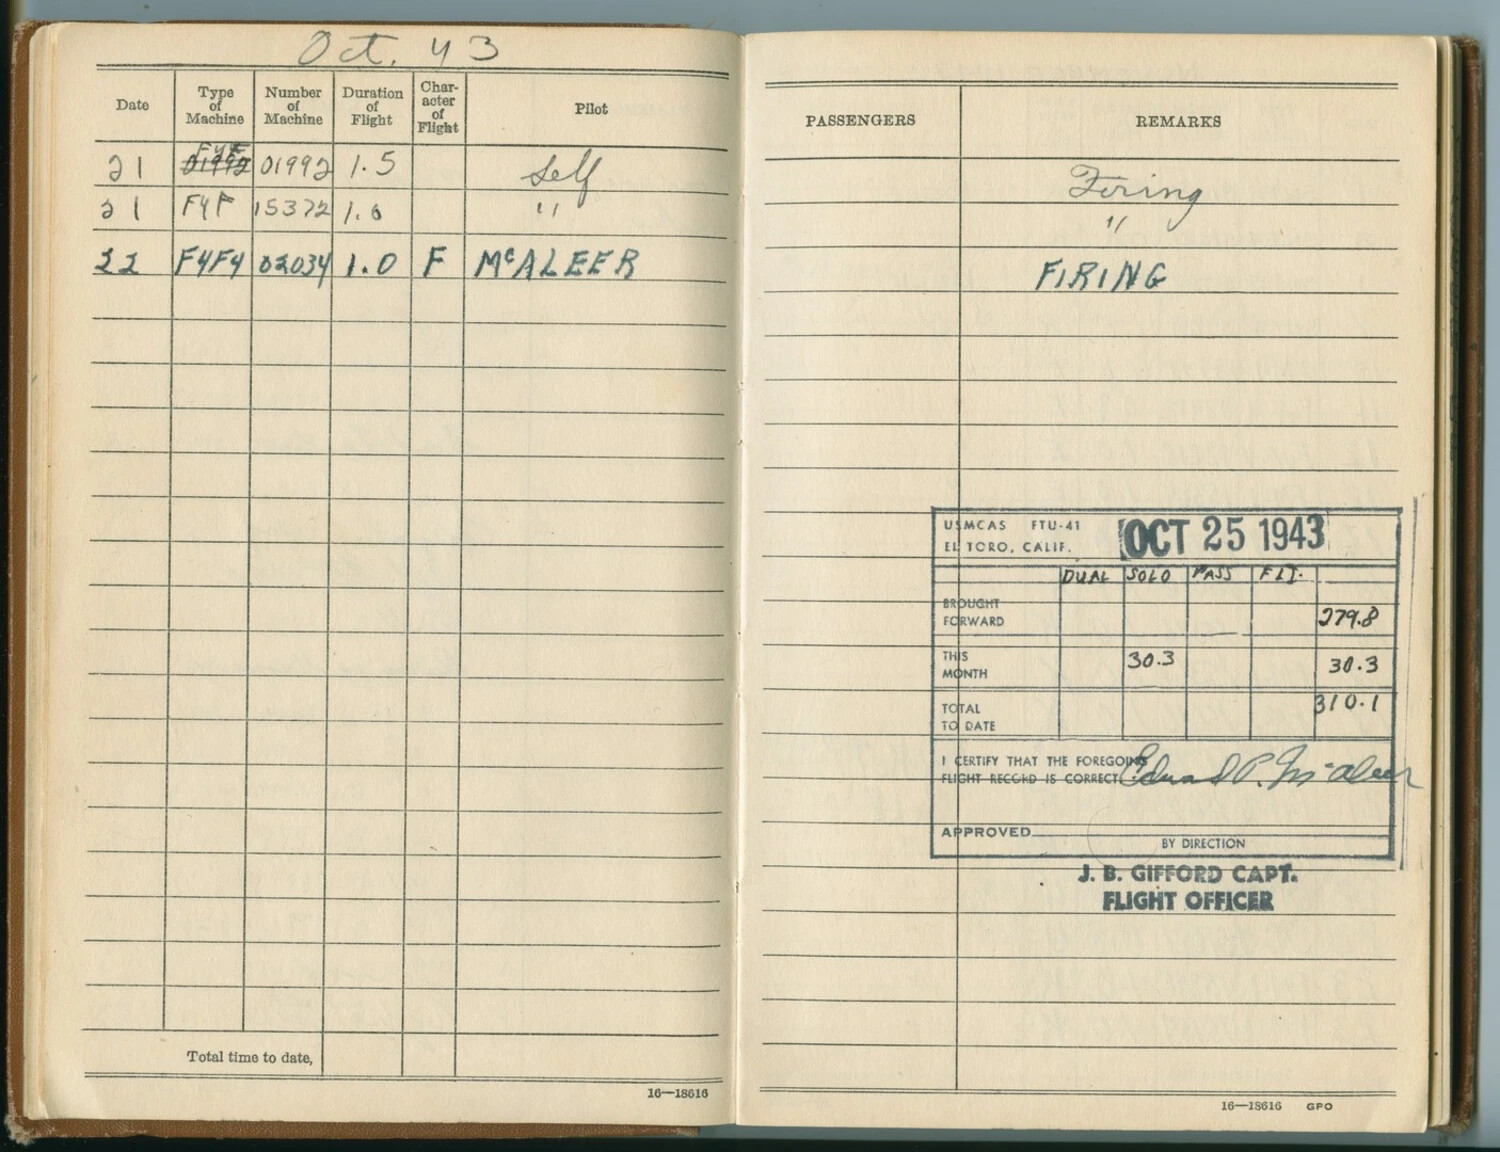 Oct. 43
Date Type of Machine Number of Machine Duration of Flight Char-acter of Flight Pilot
21 01992 F4F 01992 1.5 Self
21 F4F 15372 1.6 "
22 F4F4 02034 1.0 F McALEER
Total time to date,
16—18616
PASSENGERS REMARKS
Firing
"
FIRING
USMCAS FTU-41 OCT 25 1943
EL TORO, CALIF.
DUAL SOLO PASS FLT.
BROUGHT FORWARD 279.8
THIS MONTH 30.3 30.3
TOTAL TO DATE 310.1
I CERTIFY THAT THE FOREGOING
FLIGHT RECORD IS CORRECT Edward P. McAleer
APPROVED
BY DIRECTION
J. B. GIFFORD CAPT.
FLIGHT OFFICER
16—18616 GPO